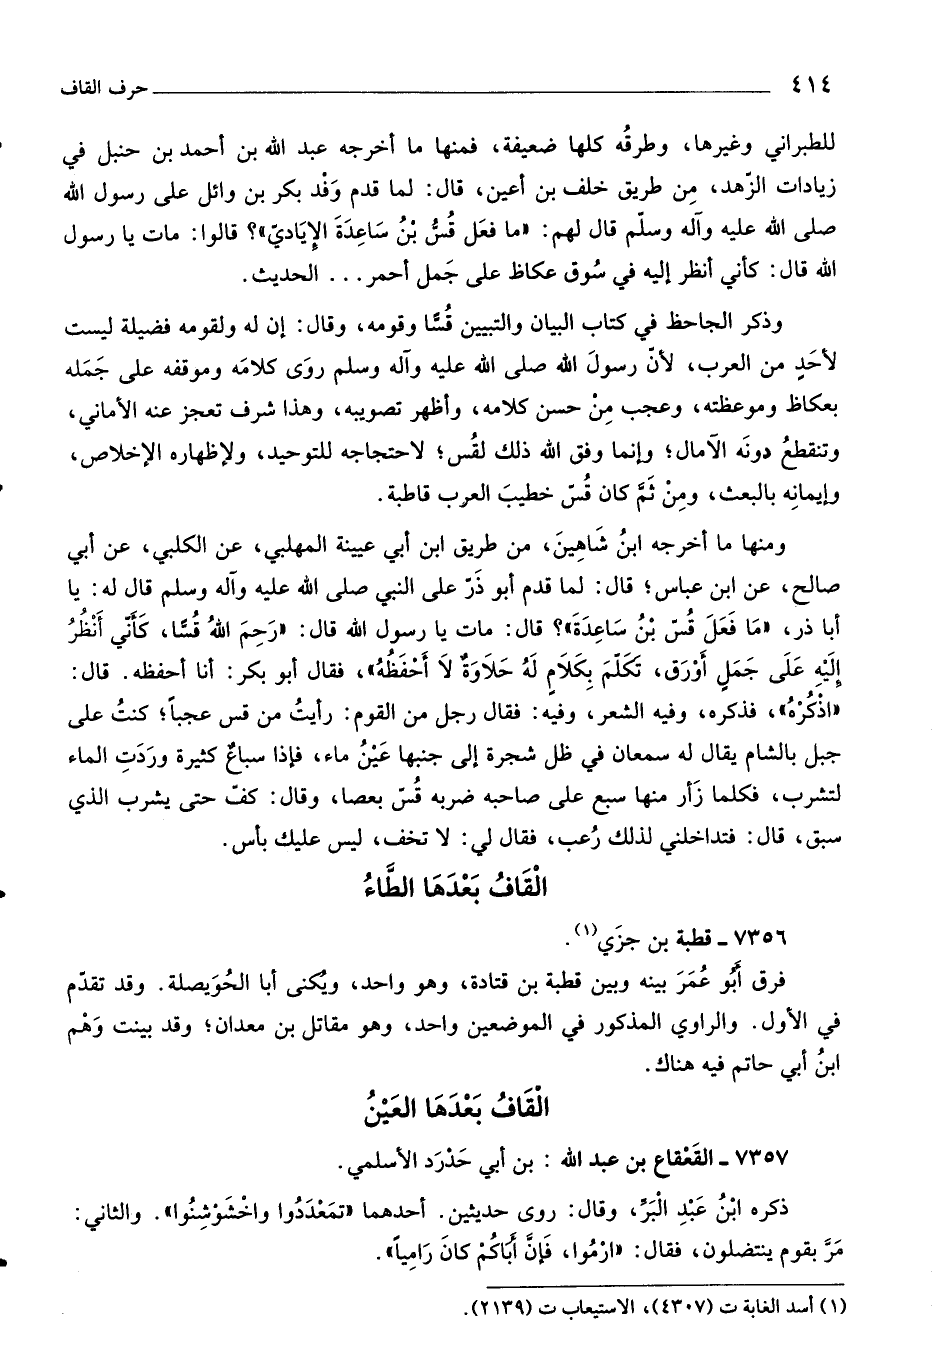 ٤١٤ حرف القاف
للطبراني وغيرها، وطرقُه كلها ضعيفة، فمنها ما أخرجه عبد الله بن أحمد بن حنبل في
زيادات الزّهد، مِن طريق خلف بن أعين، قال: لما قدم وَفْد بكر بن وائل على رسول الله
صلى الله عليه وآله وسلّم قال لهم: «ما فعَل قُسُّ بْنُ سَاعِدَةَ الإِيَاديّ»؟ قالوا: مات يا رسول
الله قال: كأني أنظر إليه في سُوق عكاظ على جَمل أحمر... الحديث.
وذكر الجاحظ في كتاب البيان والتبيين قُسًّا وقومه، وقال: إن له ولقومه فضيلة ليست
لأحَدٍ من العرب، لأنّ رسولَ الله صلى الله عليه وآله وسلم روَى كلامَه وموقفه على جَمَله
بعكاظ وموعظته، وعجب مِنْ حسن كلامه، وأظهر تصويبه، وهذا شرف تعجز عنه الأماني،
وتنقطعُ دونَه الآمال؛ وإنما وفق الله ذلك لقُس؛ لاحتجاجه للتوحيد، ولإظهاره الإخلاص،
وإيمانِه بالبعث، ومِنْ ثَمَّ كان قُسّ خطيبَ العرب قاطبة.
ومنها ما أخرجه ابنُ شَاهِينَ، من طريق ابن أبي عيينة المهلبي، عن الكلبي، عن أبي
صالح، عن ابن عباس؛ قال: لما قدم أبو ذَرّ على النبي صلى الله عليه وآله وسلم قال له: يا
أبا ذر، «مَا فَعَلَ قُسّ بْنُ سَاعِدَةَ»؟ قال: مات يا رسول الله قال: «رَحِمَ اللهُ قُسًّا، كَأَنّي أَنْظُرُ
إِلَيْهِ عَلَى جَمَلٍ أَوْرَق، تَكَلّمَ بِكَلَامٍ لَهُ حَلَاوَةٌ لَا أَحْفَظُهُ»، فقال أبو بكر: أنا أحفظه. قال:
«اذْكُرْهُ»، فذكره، وفيه الشعر، وفيه: فقال رجل من القوم: رأيتُ من قس عجباً؛ كنتُ على
جبل بالشام يقال له سمعان في ظل شجرة إلى جنبها عَيْنُ ماء، فإذا سباعٌ كثيرة ورَدَتِ الماء
لتشرب، فكلما زَأر منها سبع على صاحبه ضربه قُسّ بعصا، وقال: كفّ حتى يشرب الذي
سبق، قال: فتداخلني لذلك رُعب، فقال لي: لا تخف، ليس عليك بأس.
الْقَافُ بَعْدَهَا الطَّاءُ
٧٣٥٦ ـ قطبة بن جزَي(١).
فرق أَبُو عُمَرَ بينه وبين قطبة بن قتادة، وهو واحد، ويُكنى أبا الحُوَيصلة. وقد تقدّم
في الأول. والراوي المذكور في الموضعين واحد، وهو مقاتل بن معدان؛ وقد بينت وَهْم
ابنُ أبي حاتم فيه هناك.
الْقَافُ بَعْدَهَا العَيْنُ
٧٣٥٧ ـ القَعْقاع بن عبد الله : بن أبي حَدْرَد الأسلمي.
ذكره ابْنُ عَبْدِ الْبَرِّ، وقال: روى حديثين. أحدهما «تمَعْدَدُوا واخْشَوْشِنُوا». والثاني:
مَرَّ بقوم ينتضلون، فقال: «ارْمُوا، فَإِنَّ أَبَاكُمْ كانَ رَامِياً».
(١) أسد الغابة ت (٤٣٠٧)، الاستيعاب ت (٢١٣٩).